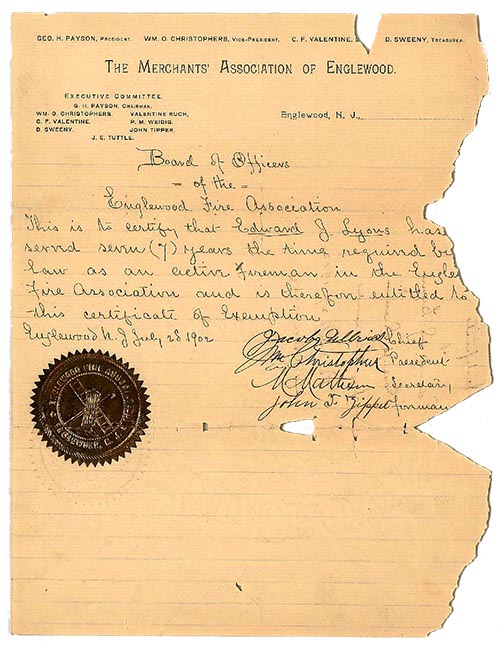 GEO. H. PAYSON, PRESIDENT. WM. O. CHRISTOPHERS, VICE-PRESIDENT. C. F. VALENTINE, D. SWEENY, TREASURER.
THE MERCHANTS' ASSOCIATION OF ENGLEWOOD.
EXECUTIVE COMMITTEE.
G. H. PAYSON, CHAIRMAN.
WM. O. CHRISTOPHERS, VALENTINE RUCH,
C. F. VALENTINE, P. M. WEIDIG,
D. SWEENY, JOHN TIPPER,
J. E. TUTTLE.
Englewood, N. J.,
Board of Officers
= of the =
Englewood Fire Association
This is to certify that Edward J. Lyons has
served seven (7) years the time required by
law as an active fireman in the Engle
Fire Association and is therefore entitled to
this certificate of Exemption
Englewood N. J July 28 1902
Jacob Ullrich Chief
Christopher President
Secretary
John T. Tipper foreman
ENGLEWOOD FIRE
ENGLEWOOD, N. J.